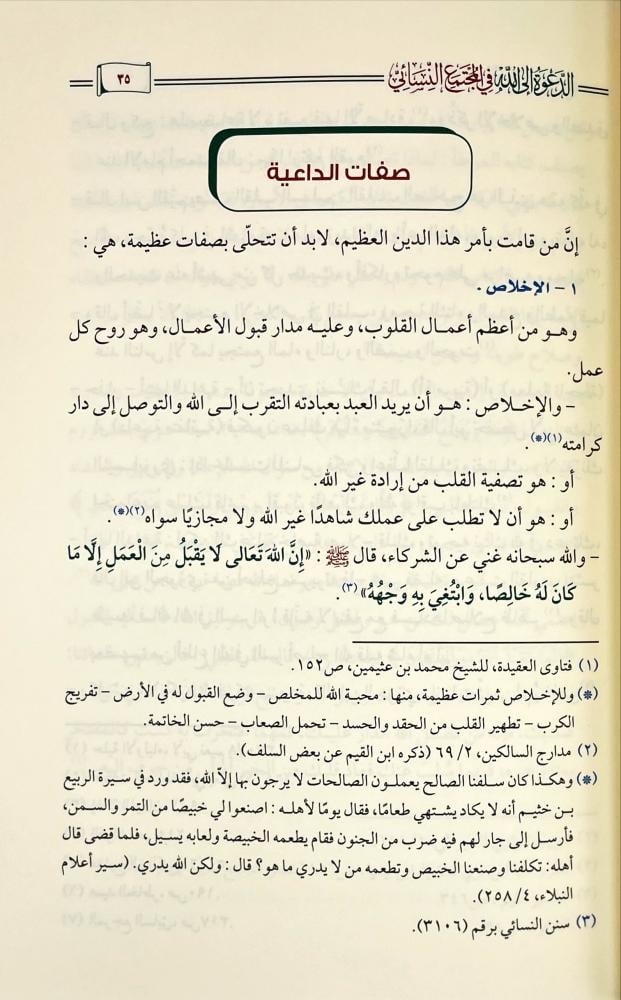 الدَّعوَة إلى اللَّه في المجتمع النسائي
٣٥
صفات الداعية
إنَّ من قامت بأمر هذا الدين العظيم، لابد أن تتحلّى بصفات عظيمة، هي :
١ - الإخلاص .
وهو من أعظم أعمال القلوب، وعليه مدار قبول الأعمال، وهو روح كل
عمل.
- والإخلاص : هو أن يريد العبد بعبادته التقرب إلى الله والتوصل إلى دار
كرامته(١)(*).
أو : هو تصفية القلب من إرادة غير الله.
أو : هو أن لا تطلب على عملك شاهدًا غير الله ولا مجازيًا سواه(٢)(*).
- والله سبحانه غني عن الشركاء، قال ﷺ : «إِنَّ اللهَ تَعَالى لَا يَقْبَلُ مِنَ الْعَمَلِ إِلَّا مَا
كَانَ لَهُ خَالِصًا، وَابْتُغِيَ بِهِ وَجْهُهُ»(٣).
(١) فتاوى العقيدة، للشيخ محمد بن عثيمين، ص١٥٢.
(*) وللإخلاص ثمرات عظيمة، منها : محبة الله للمخلص - وضع القبول له في الأرض - تفريج
الكرب - تطهير القلب من الحقد والحسد - تحمل الصعاب - حسن الخاتمة.
(٢) مدارج السالكين، ٢/ ٦٩ (ذكره ابن القيم عن بعض السلف).
(*) وهكذا كان سلفنا الصالح يعملون الصالحات لا يرجون بها إلاّ الله، فقد ورد في سيرة الربيع
بن خثيم أنه لا يكاد يشتهي طعامًا، فقال يومًا لأهله : اصنعوا لي خبيصًا من التمر والسمن،
فأرسل إلى جار لهم فيه ضرب من الجنون فقام يطعمه الخبيصة ولعابه يسيل، فلما قضى قال
أهله: تكلفنا وصنعنا الخبيص وتطعمه من لا يدري ما هو؟ قال : ولكن الله يدري. (سير أعلام
النبلاء، ٤/ ٢٥٨).
(٣) سنن النسائي برقم (٣١٠٦).